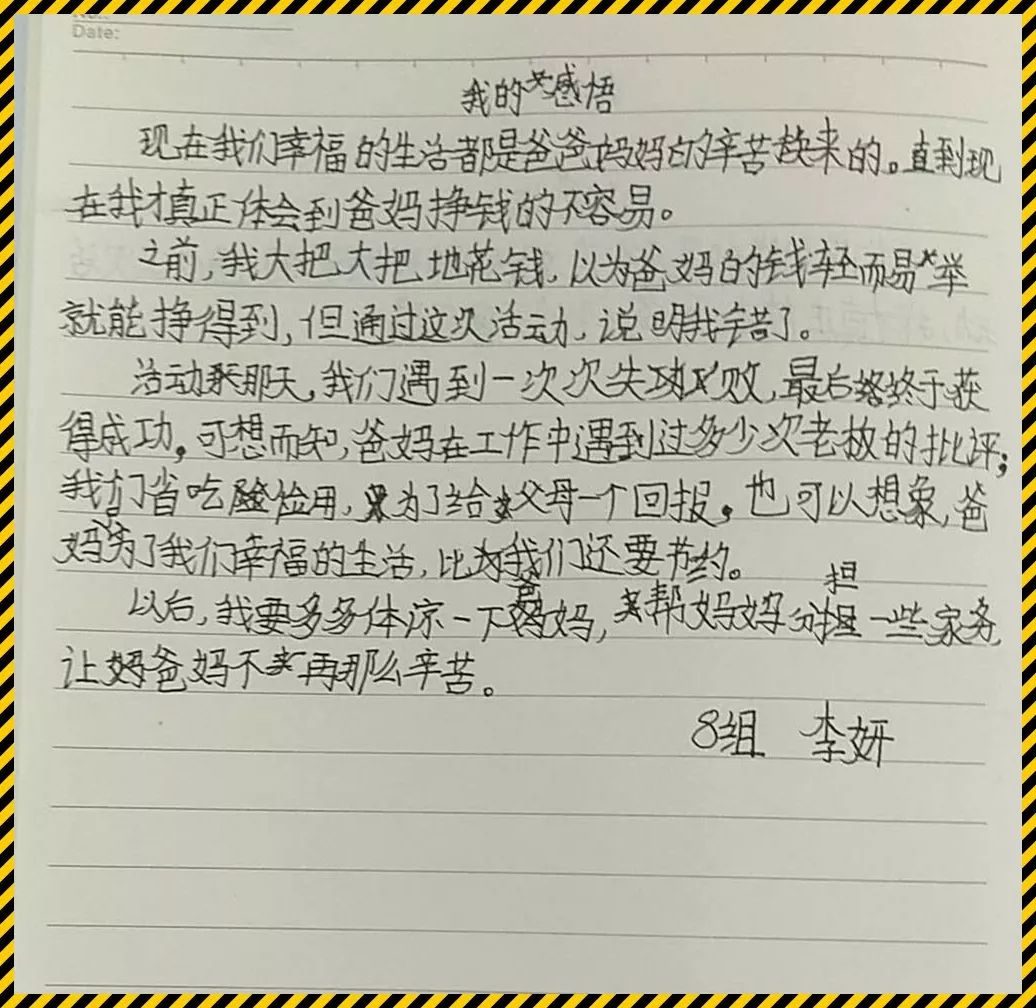 No.:
Date:
我的感悟
现在我们幸福的生活都是爸爸妈妈的辛苦换来的。直到现
在我才真正体会到爸妈挣钱的不容易。
之前,我大把大把地花钱,以为爸妈的钱轻而易举
就能挣得到,但通过这次活动,说明我辛苦了。
活动那天,我们遇到一次次失败,最后终于获
得成功。可想而知,爸妈在工作中遇到过多少次老板的批评;
我们省吃俭用,为了给父母一个回报。也可以想象,爸
妈为了我们幸福的生活,比我们还要节约。
以后,我要多多体凉一下爸妈,帮妈妈分担一些家务,
让爸妈不再那么辛苦。
8组 李妍